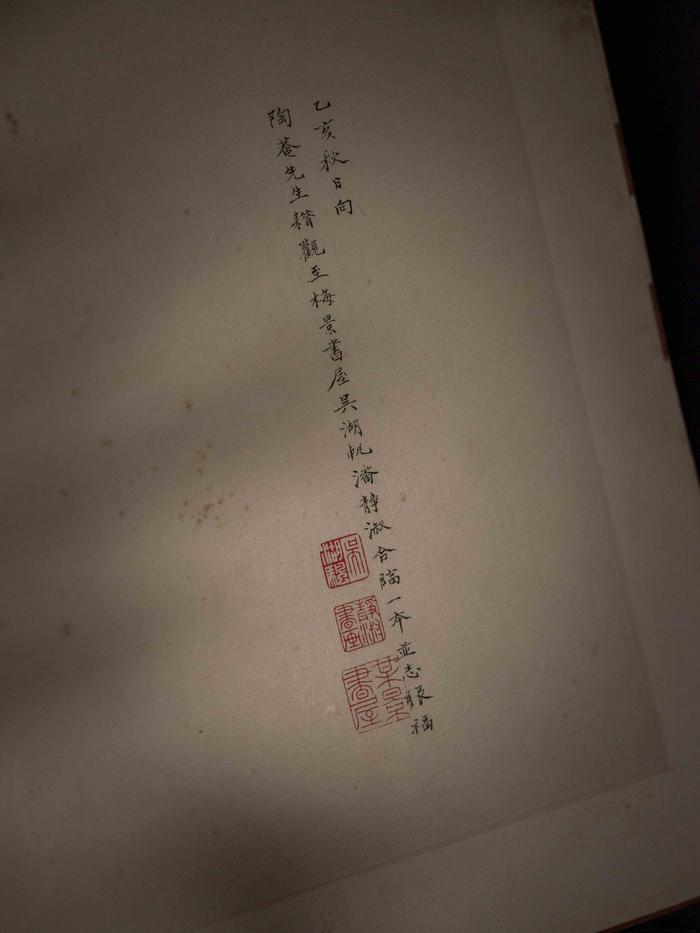 乙亥秋日向
陶菴先生耤觀至梅景書屋吳湖帆潘靜淑合臨一本並志眼福
吳湖颿
靜淑書畫
某景書屋